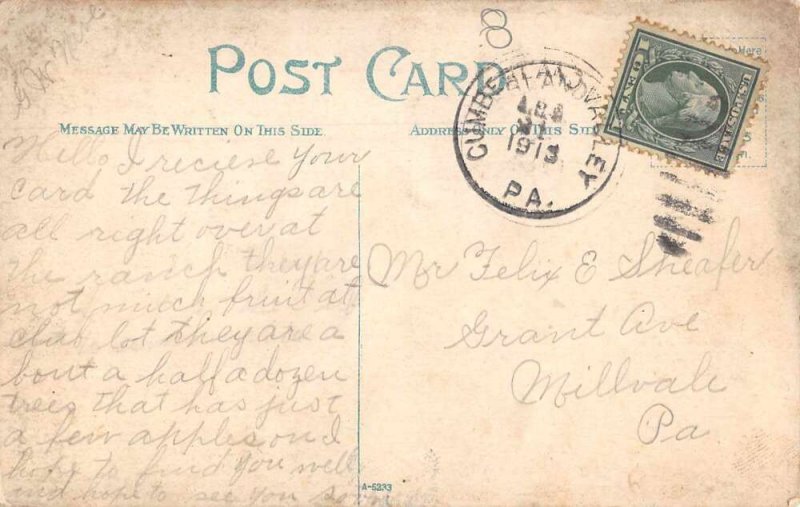 8
POST CARD
MESSAGE MAY BE WRITTEN ON THIS SIDE
ADDRESS ONLY ON THIS SIDE
Here
CUMBERLAND VALLEY
1913
PA.
U.S. POSTAGE
1 CENT 1
Hello I reciese your
card the things are
all right over at
the ranch they are
not much fruit at
club lot they are a
bout a half a dozen
trees that has just
a few apples on I
hope to find you well
and hope to see you soon
Mr Felix E Sheafer
Grant Ave
Millvale
Pa
A-5233